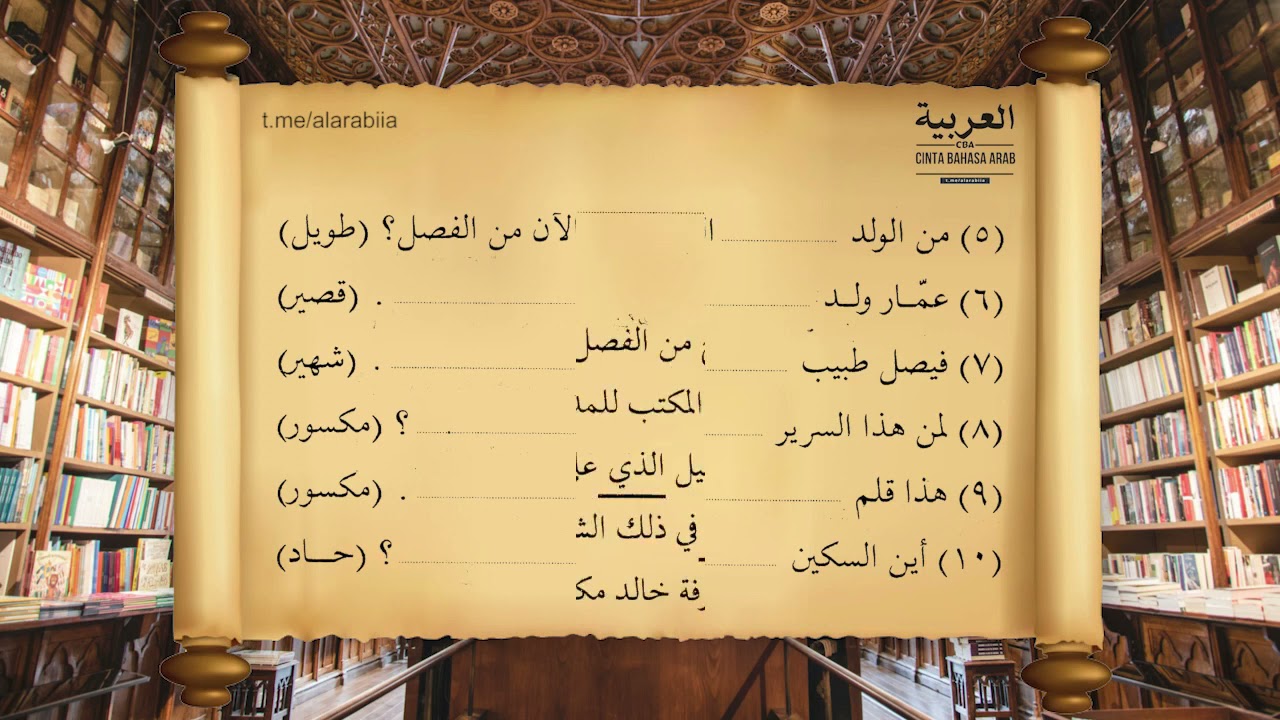 t.me/alarabiia
العربية
CBA
CINTA BAHASA ARAB
t.me/alarabiia
(٥) من الولد ........ ا ........ الآن من الفصل؟ (طويل)
(٦) عمّـار ولـد ........ . (قصير)
من الفصل
(٧) فيصل طبيب ........ . (شهير)
المكتب للمد
(٨) لمن هذا السرير ........ ؟ (مكسور)
يل الذي عا
(٩) هذا قلم ........ . (مكسور)
في ذلك الش
(١٠) أين السكين ........ ؟ (حـاد)
رفة خالد مك